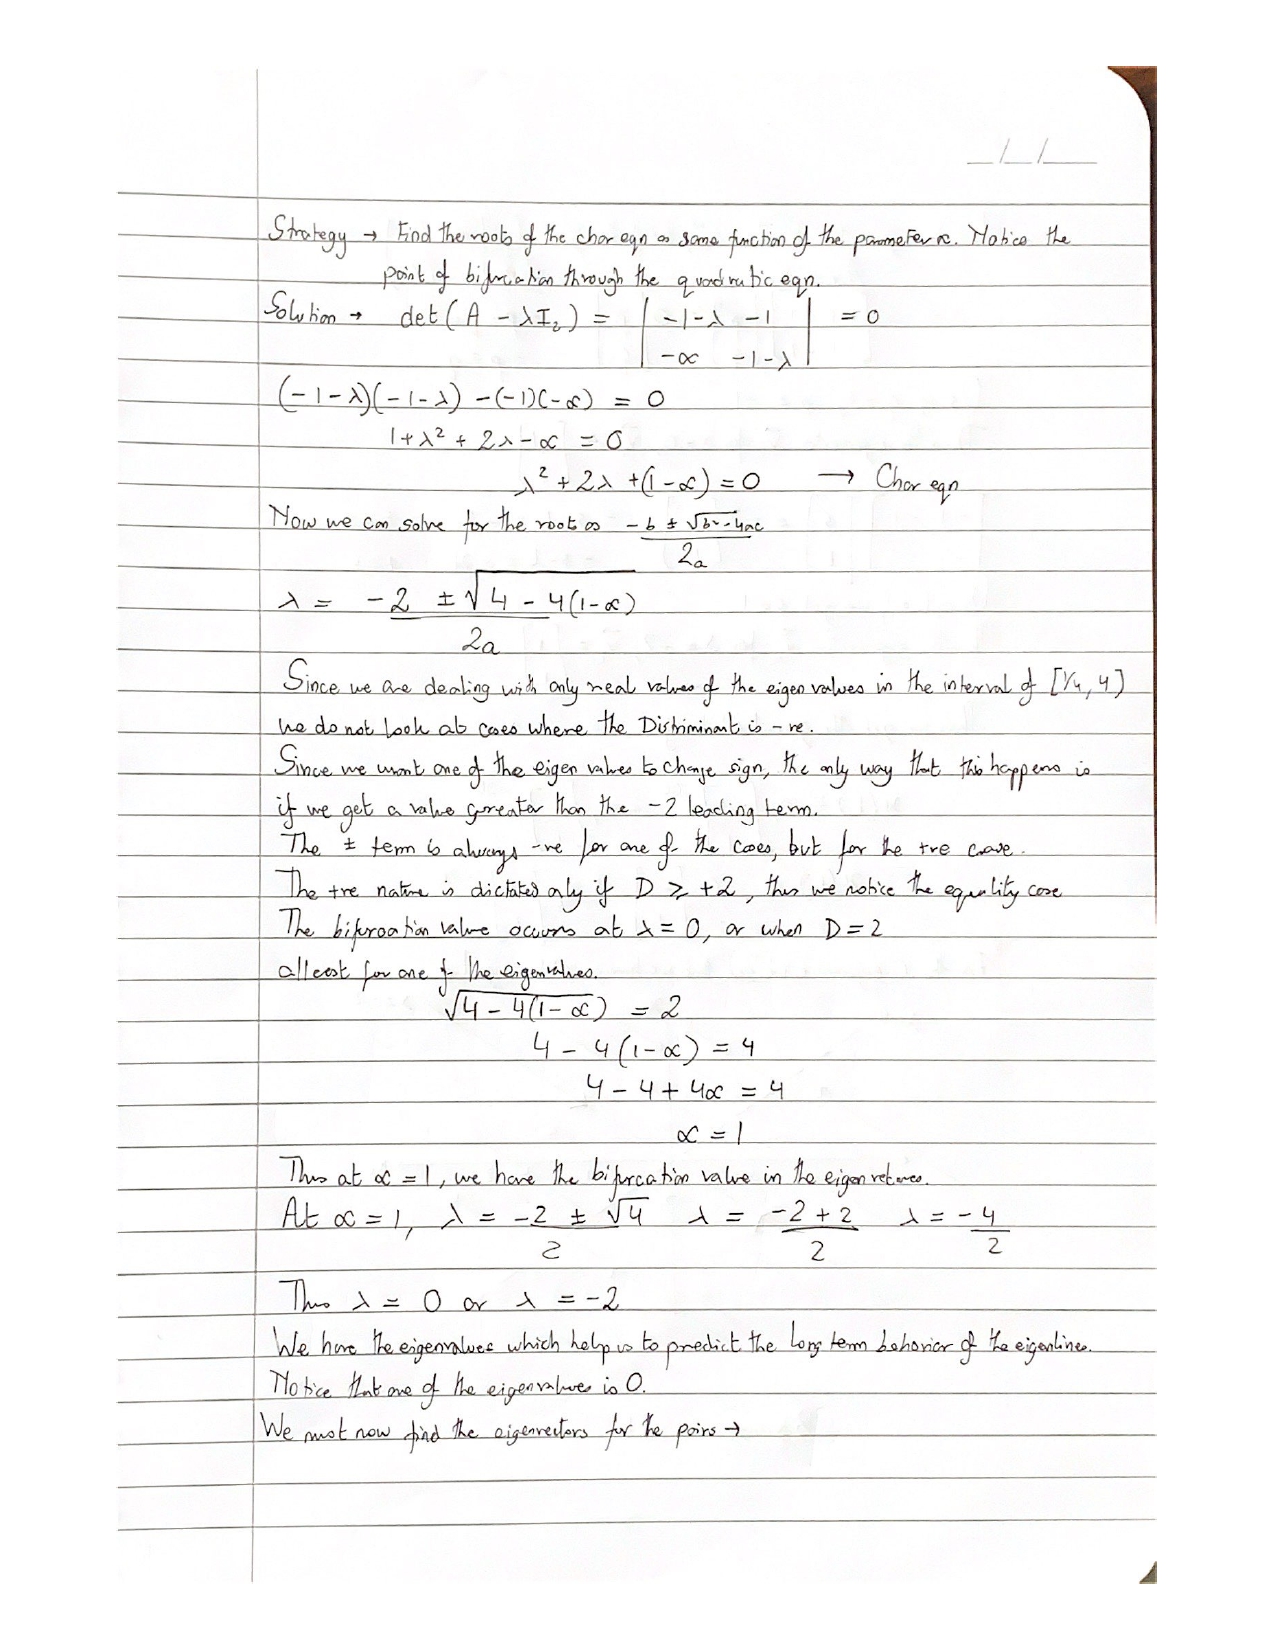 _/_/__
Strategy → Find the roots of the char eqn as some function of the parameter α. Notice the
point of bifurcation through the quadratic eqn.
Solution → det(A - λI₂) = | -1-λ -1 | = 0
| -α -1-λ |
(-1-λ)(-1-λ) - (-1)(-α) = 0
1+λ² + 2λ - α = 0
λ² + 2λ + (1-α) = 0 → Char eqn
Now we can solve for the root as -b ± √b² - 4ac
2a
λ = -2 ± √4 - 4(1-α)
2a
Since we are dealing with only real values of the eigen values in the interval of [1/4, 4]
we do not look at cases where the Distriminant is -ve.
Since we want one of the eigen values to change sign, the only way that this happens is
if we get a value greater than the -2 leading term.
The ± term is always -ve for one of the cases, but for the +ve case.
The +ve nature is dictated only if D ≥ +2, thus we notice the equality case
The bifurcation value occurs at λ = 0, or when D = 2
atleast for one of the eigenvalues.
√4 - 4(1-α) = 2
4 - 4(1-α) = 4
4 - 4 + 4α = 4
α = 1
Thus at α = 1, we have the bifurcation value in the eigenvalues.
At α = 1, λ = -2 ± √4 λ = -2 + 2 λ = -4
2 2 2
Thus λ = 0 or λ = -2
We have the eigenvalues which help us to predict the long term behavior of the eigenlines.
Notice that one of the eigenvalues is 0.
We must now find the eigenvectors for the pairs →